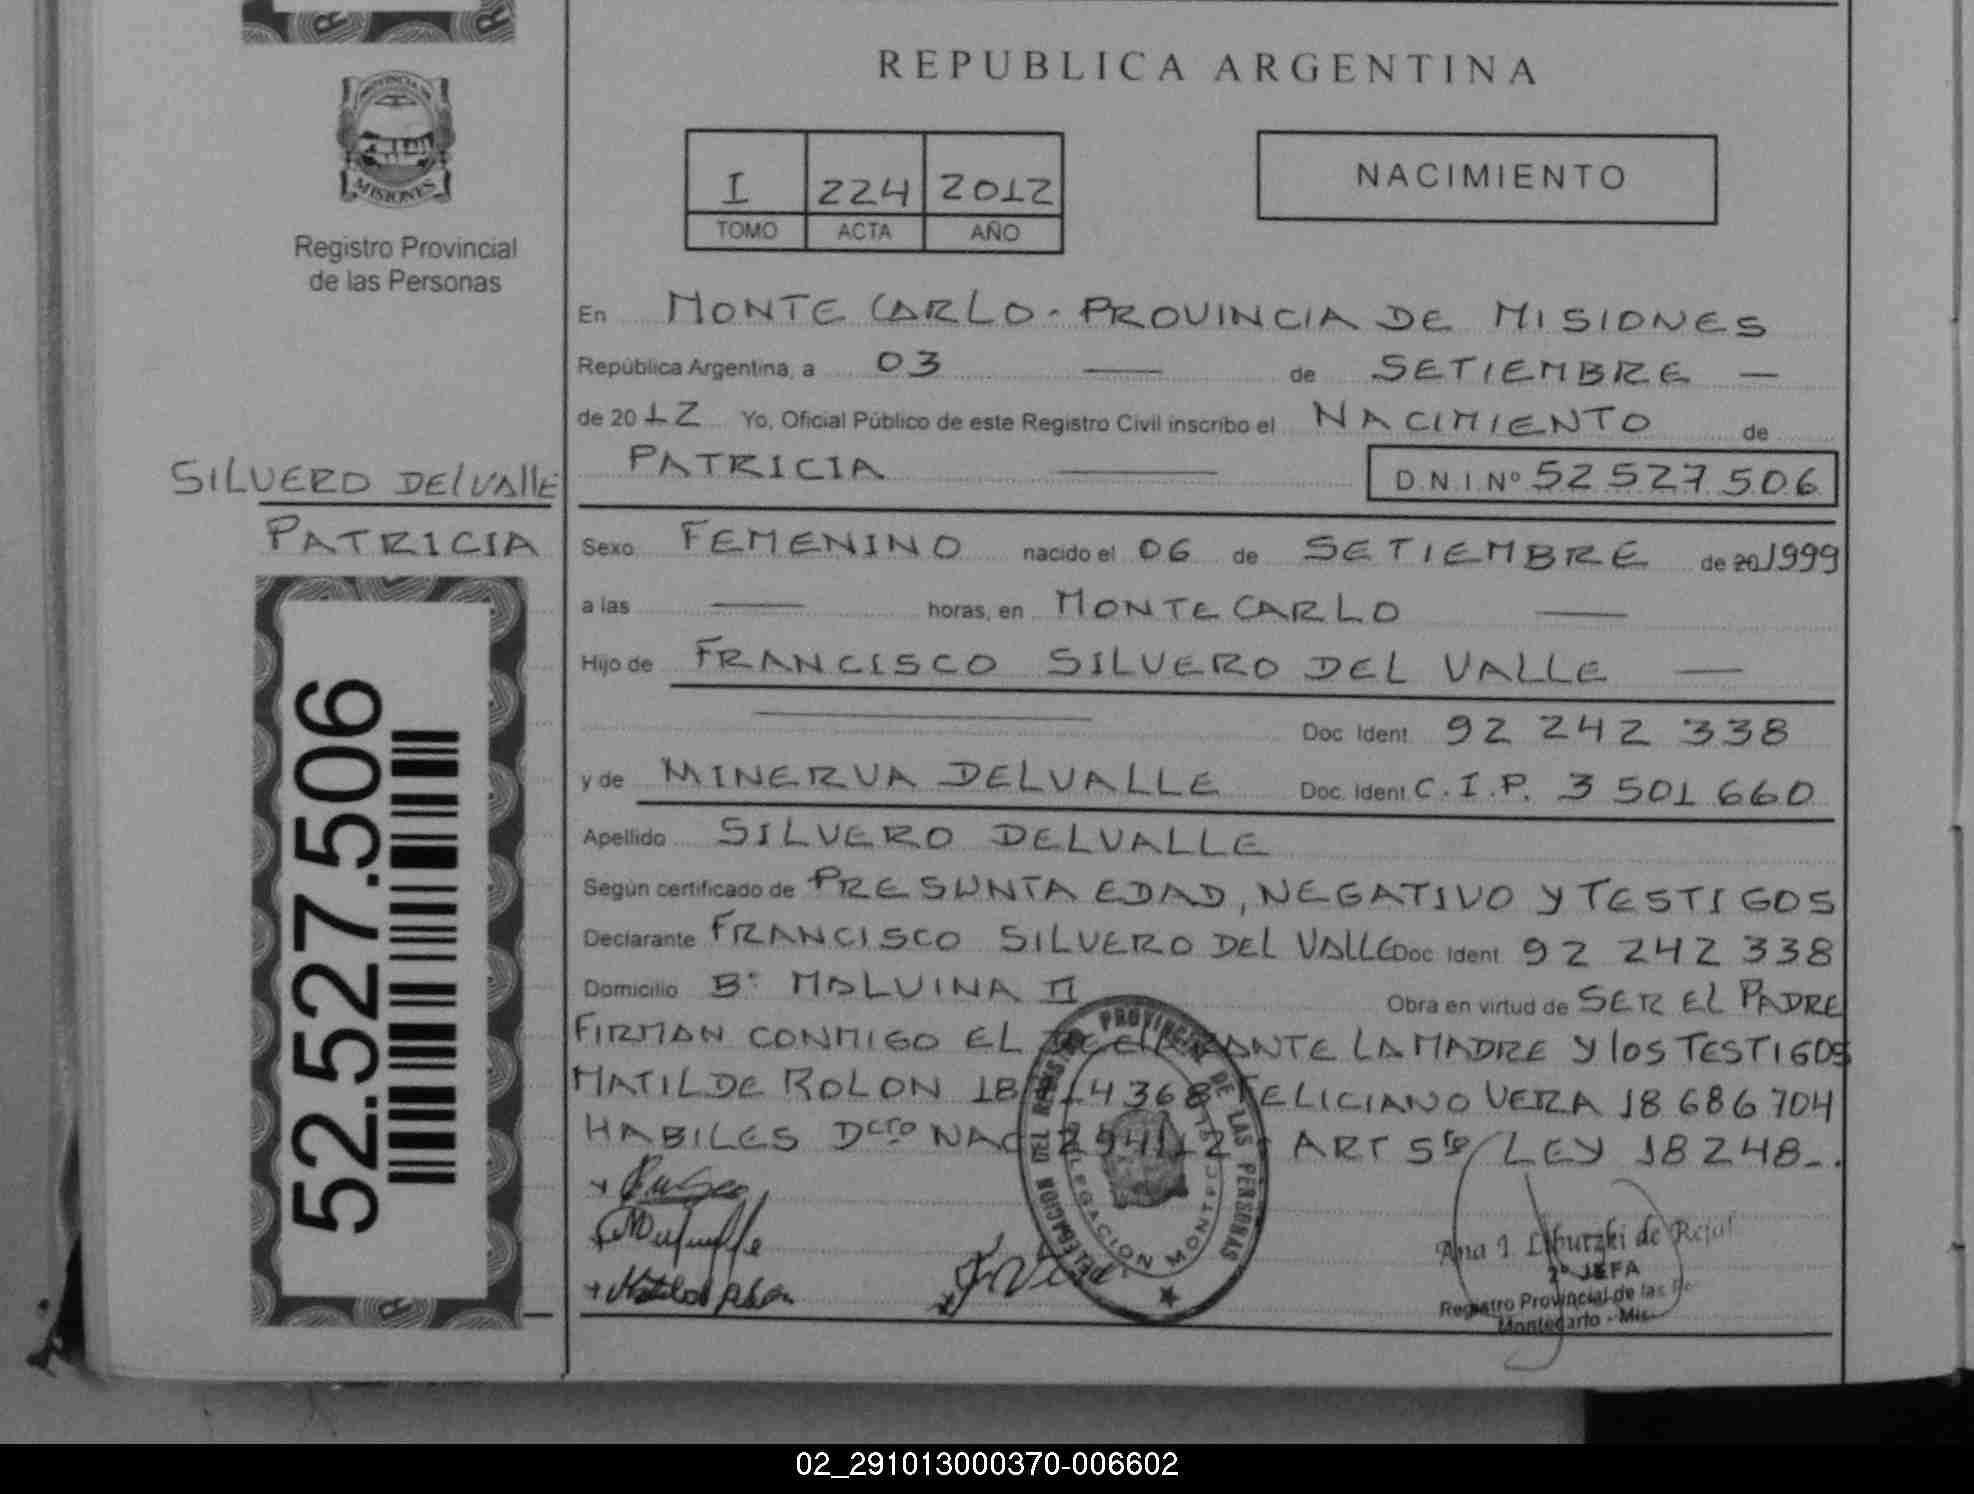 REPUBLICA ARGENTINA
PROVINCIA DE
MISIONES
Registro Provincial
de las Personas
I 224 2012
TOMO ACTA AÑO
NACIMIENTO
En MONTE CARLO - PROVINCIA DE MISIONES
República Argentina, a 03 — de SETIEMBRE —
de 2012 Yo, Oficial Público de este Registro Civil inscribo el NACIMIENTO de
PATRICIA — D.N.I. Nº 52 527 506
SILVERO DELVAllE
PATRICIA
Sexo FEMENINO nacido el 06 de SETIEMBRE de 20 1999
a las — horas, en MONTECARLO —
Hijo de FRANCISCO SILVERO DEL VALLE —
— Doc. Ident. 92 242 338
y de MINERVA DELVALLE Doc. Ident. C.I.P. 3 501 660
Apellido SILVERO DELVALLE
Según certificado de PRESUNTA EDAD, NEGATIVO Y TESTIGOS
Declarante FRANCISCO SILVERO DEL VALLE Doc Ident 92 242 338
Domicilio Bº MALVINA II Obra en virtud de SER EL PADRE
FIRMAN CONMIGO EL LA MADRE Y los TESTIGOS
MATILDE ROLON FELICIANO VERA 18 686 704
HABILES Dcto NAC ART 5to/ LEY 18248-.
52.527.506
DELEGACION DEL REGISTRO PROVINCIAL DE LAS PERSONAS
DELEGACION MONTEC
Ana I. de
2º JEFA
Registro Provincial de las Pe
Montecarlo - Mis.
02_291013000370-006602